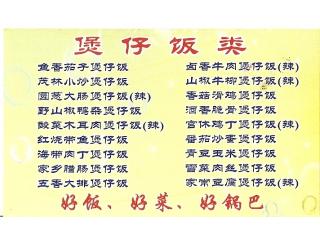 煲仔饭类
鱼香茄子煲仔饭
茂林小炒煲仔饭
圆葱大肠煲仔饭(辣)
野山椒鸭杂煲仔饭
酸菜木耳肉煲仔饭(辣)
红烧带鱼煲仔饭
海带肉丁煲仔饭
家乡腊肠煲仔饭
五香大排煲仔饭
卤香牛肉煲仔饭(辣)
山椒牛柳煲仔饭(辣)
香菇滑鸡煲仔饭
酒香脆骨煲仔饭
宫保鸡丁煲仔饭(辣)
番茄炒蛋煲仔饭
青豆玉米煲仔饭
雪菜肉丝煲仔饭
家常豆腐煲仔饭(辣)
好饭、好菜、好锅巴